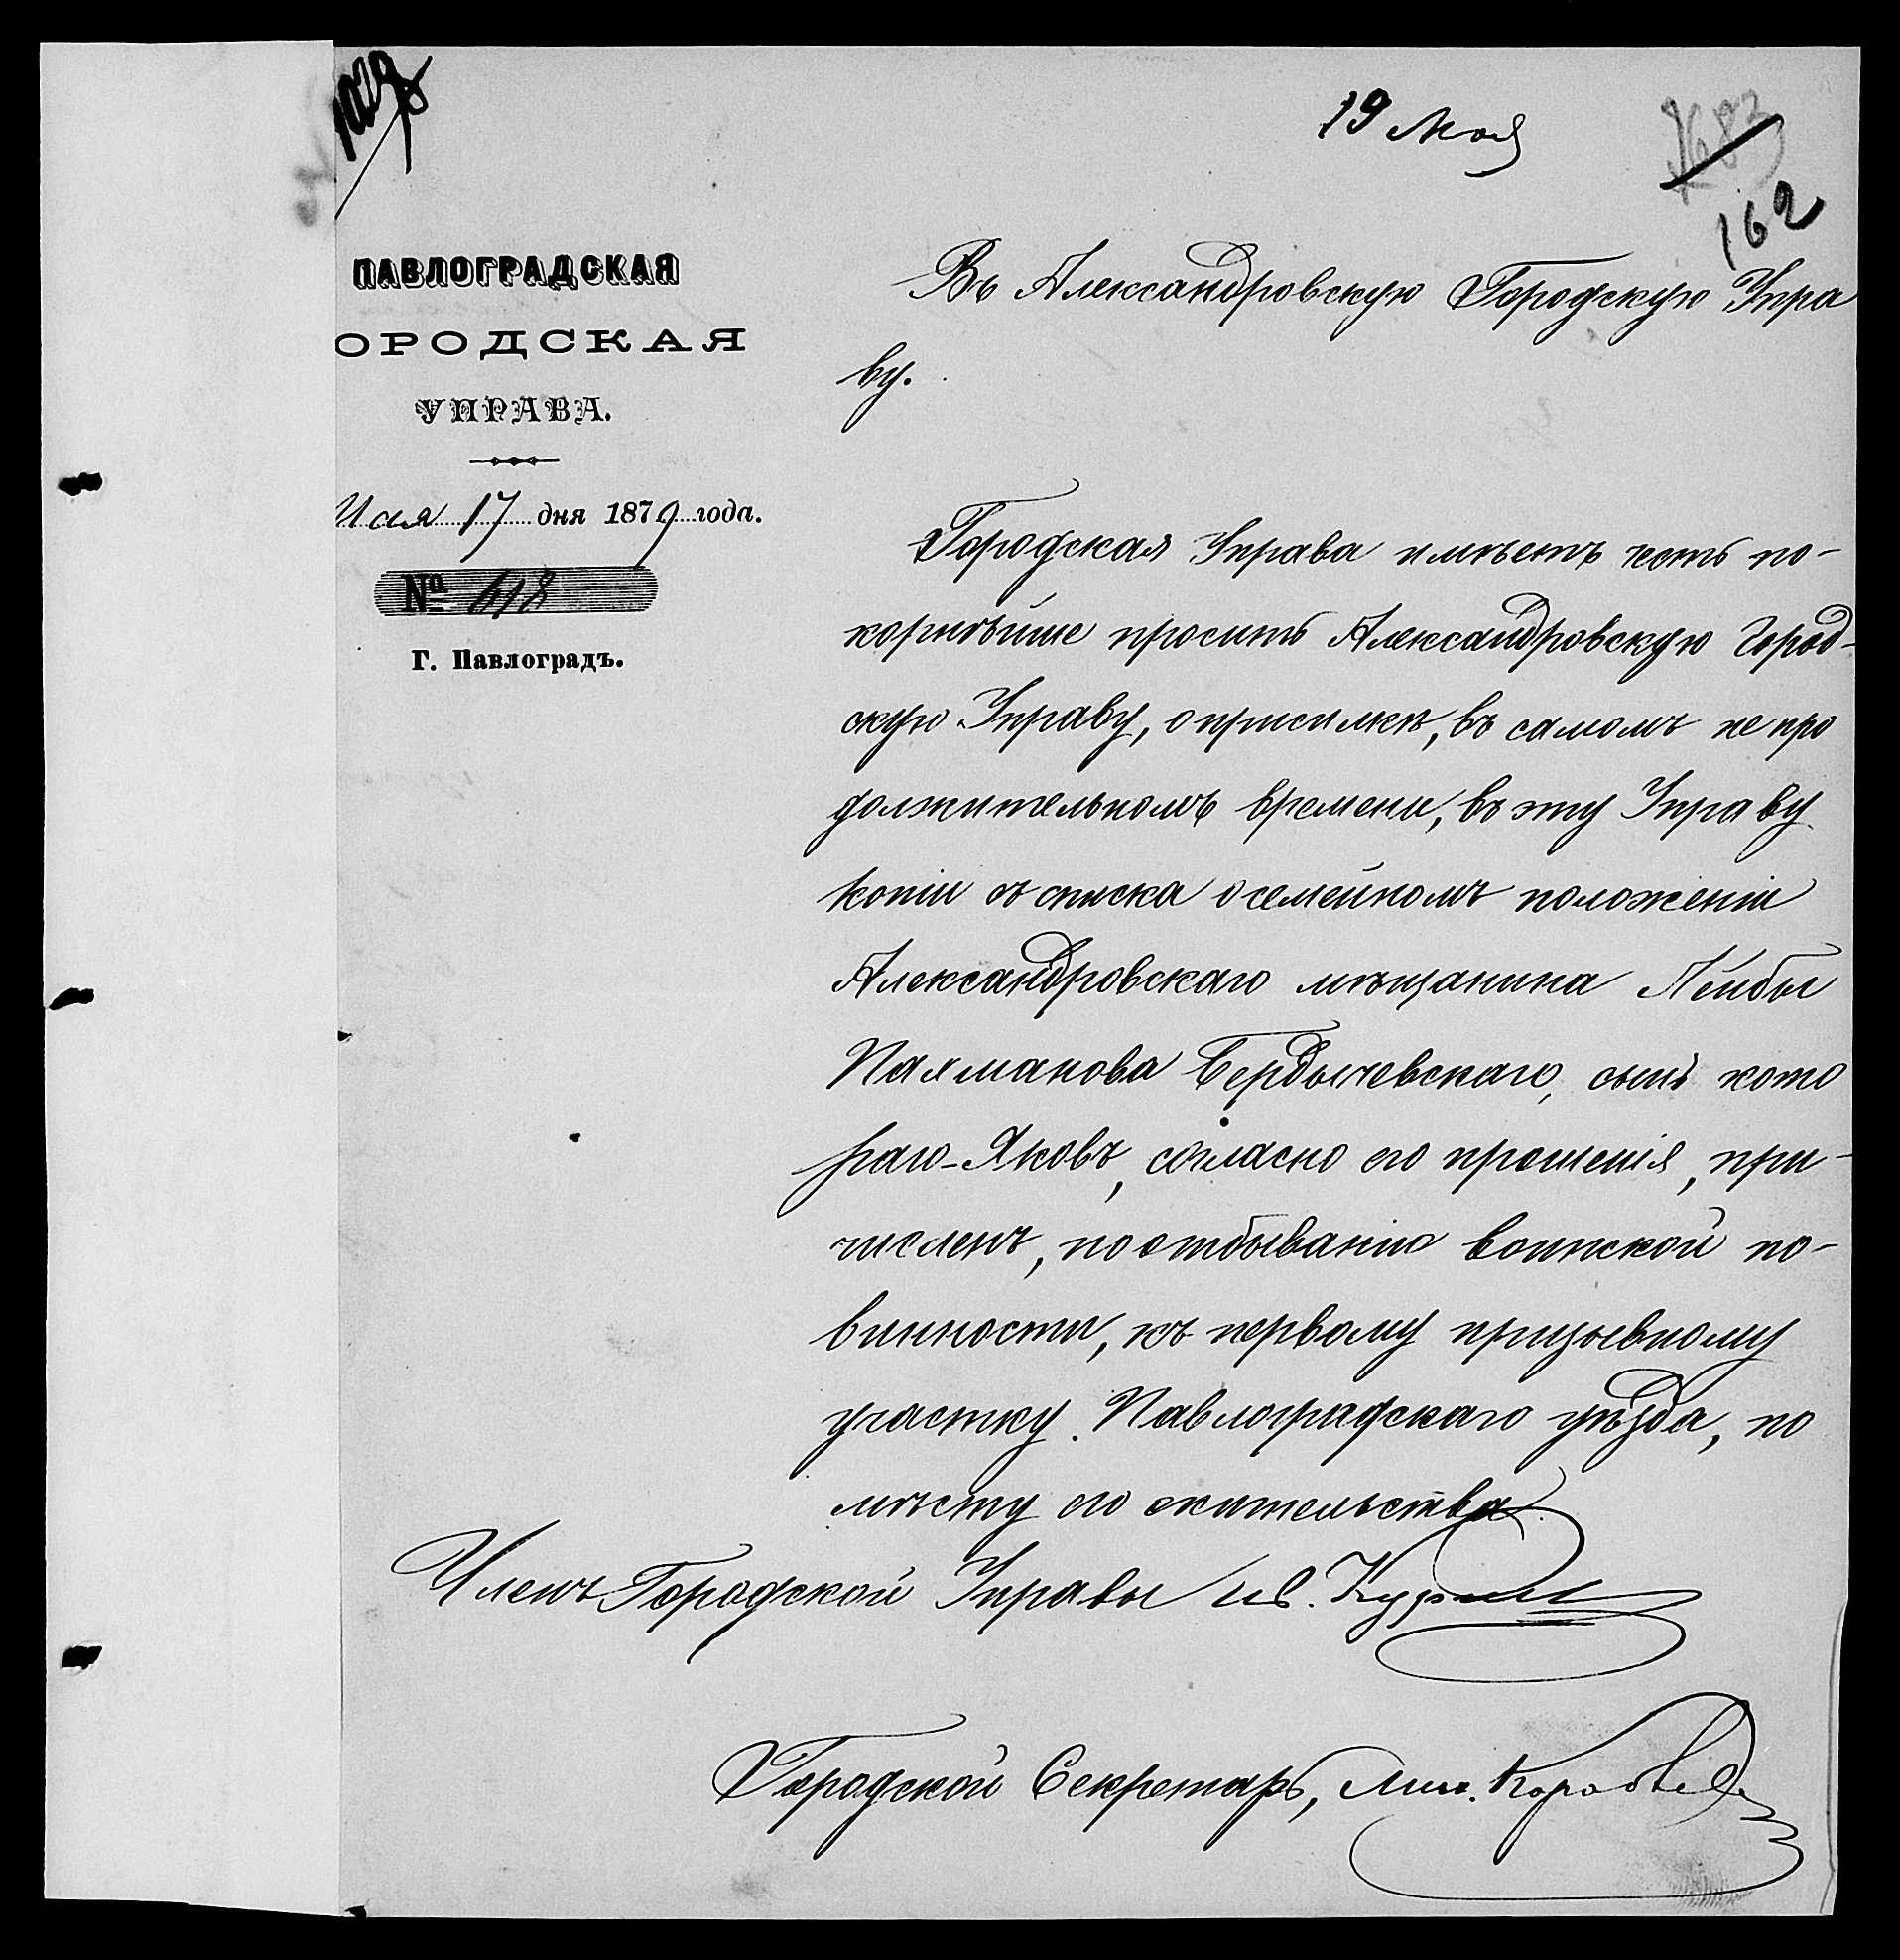 1029
19 Мая
1683
162
ПАВЛОГРАДСКАЯ
ОРОДСКАЯ
УПРАВА.
Мая 17 дня 1879 года.
№ 618
Г. Павлоградъ.
Въ Александровскую Городскую Упра
ву.
Городская Управа имѣетъ честь по-
корнѣйше просить Александровскую Город-
скую Управу, о присилкѣ, въ самомъ непро
должительномъ времени, въ эту Управу
копіи съ списка о семейномъ положеніи
Александровскаго мѣщанина Лейбы
Нахманова Бердычевскаго, сынъ кото
раго - Яковъ, согласно его прошенія, при-
численъ, по отбыванію воинской по-
винности, къ первому призывному
участку Павлоградскаго уѣзда, по
мѣсту его жительства.
Членъ Городской Управы Ив.
Городской Секретарь, Мих.